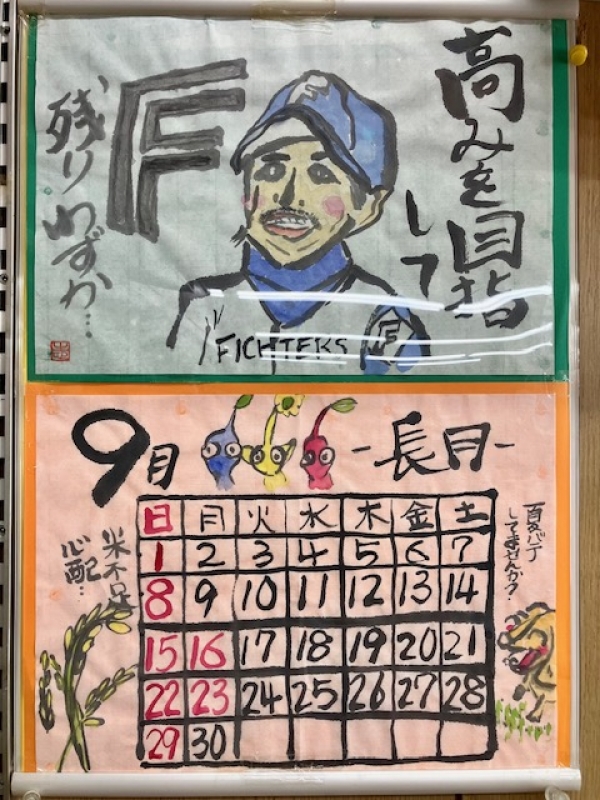 高みを目指
して
F
残りわずか…
F
FIGHTERS
F
9月
-長月-
日 月 火 水 木 金 土
1 2 3 4 5 6 7
8 9 10 11 12 13 14
15 16 17 18 19 20 21
22 23 24 25 26 27 28
29 30
夏バテ
してませんか?
米不足
心配…